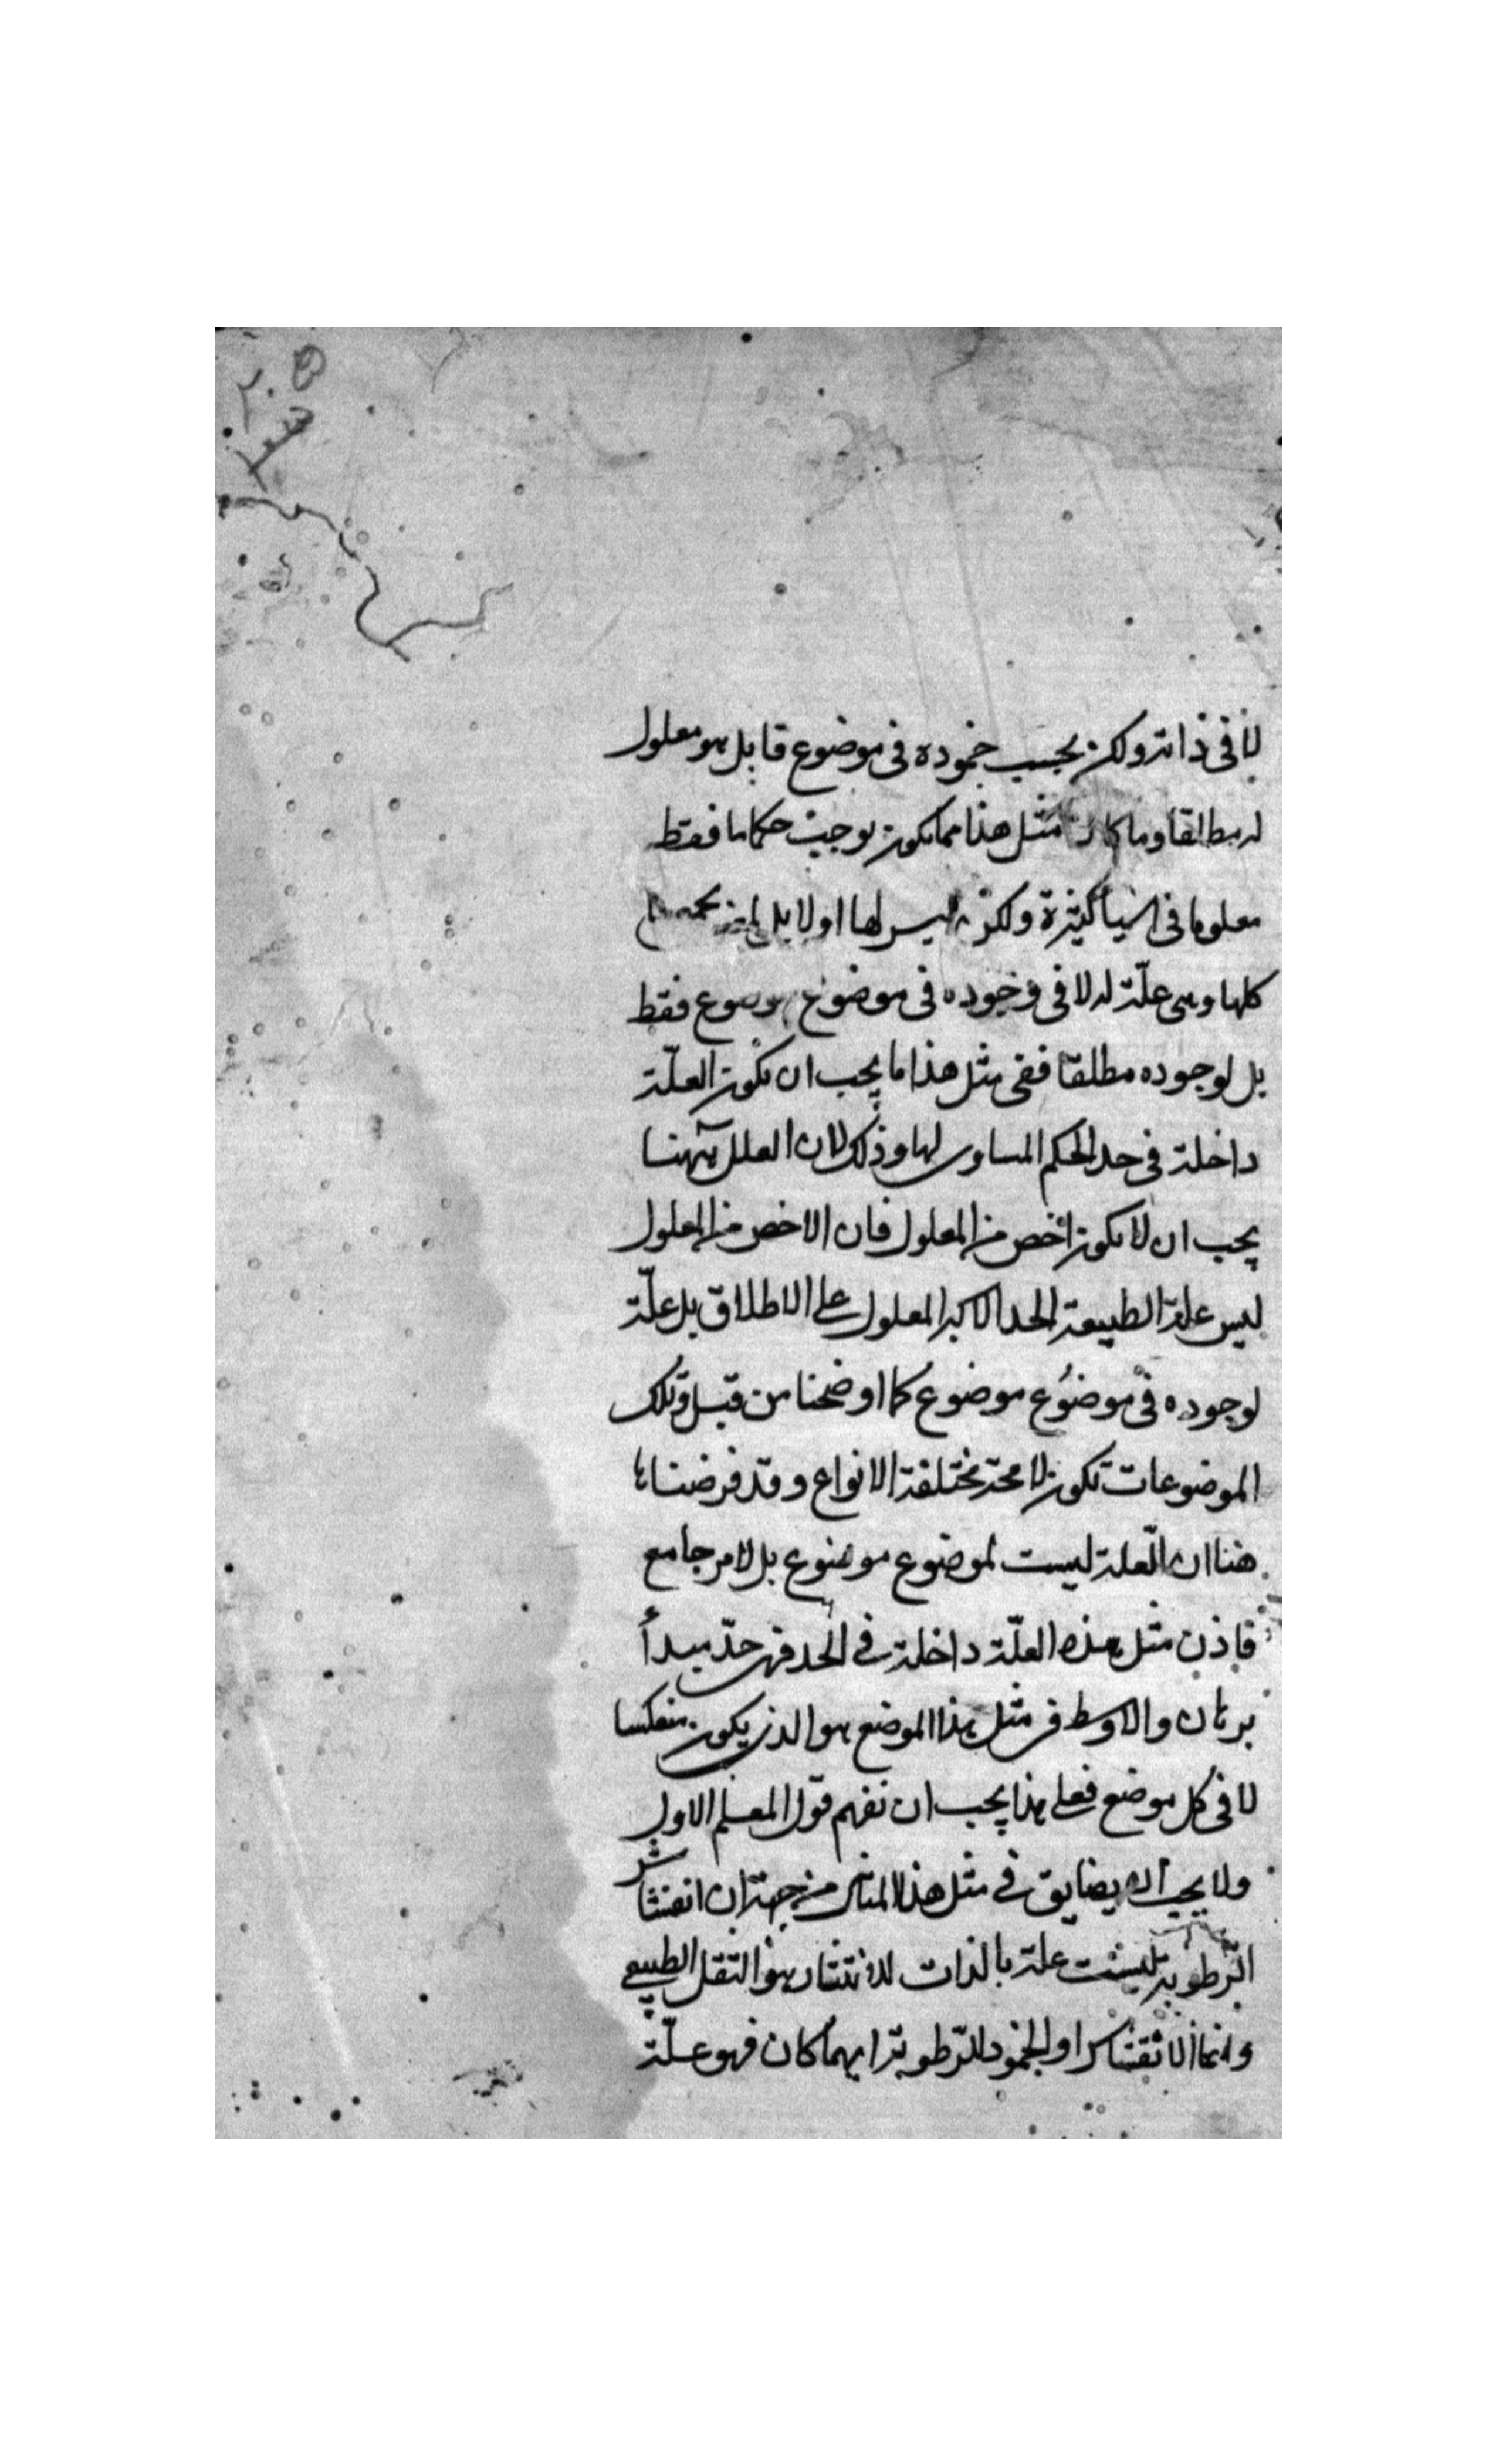 لا فى ذاته ولكن بحسب خموده فى موضوع قابل هو معلول
له مطلقا وما كان مثل هذا مما يكون يوجب حكما ما فقط
معلوما فى اشيأ كثيرة ولكن ليس لها اولا بل
كلها وهى علّة له لا فى وجوده فى موضوع موضوع فقط
بل لوجوده مطلقا ففى مثل هذا ما يجب ان يكون العلّة
داخلة فى حد الحكم المساوى لها وذلك لان العلل ههنا
يجب ان لا يكون اخص من المعلول فان الاخص من المعلول
ليس علة الطبيعة الحد الاكبر المعلول على الاطلاق بل علّة
لوجوده فى موضوع موضوع كما اوضحنا من قبل وتلك
الموضوعات تكون لا محة مختلفة الانواع وقد فرضنا
هنا ان العلة ليست لموضوع موضوع بل لامر جامع
فاذن مثل هذه العلّة داخلة فى الحد فهى حدّ مبدأ
برهان والاوسط فى مثل هذا الموضع هو الذى يكون منعكسا
لا فى كل موضع فعلى هذا يجب ان نفهم قول المعلم الاول
ولا يجب ان يضايق فى مثل هذا المثال من جهة ان انفشاش
الرّطوبة ليست علة بالذات للانتثار هو الثقل الطبيعى
وانما الانفشاش او الجمود للرّطوبة ايهما كان فهو علّة